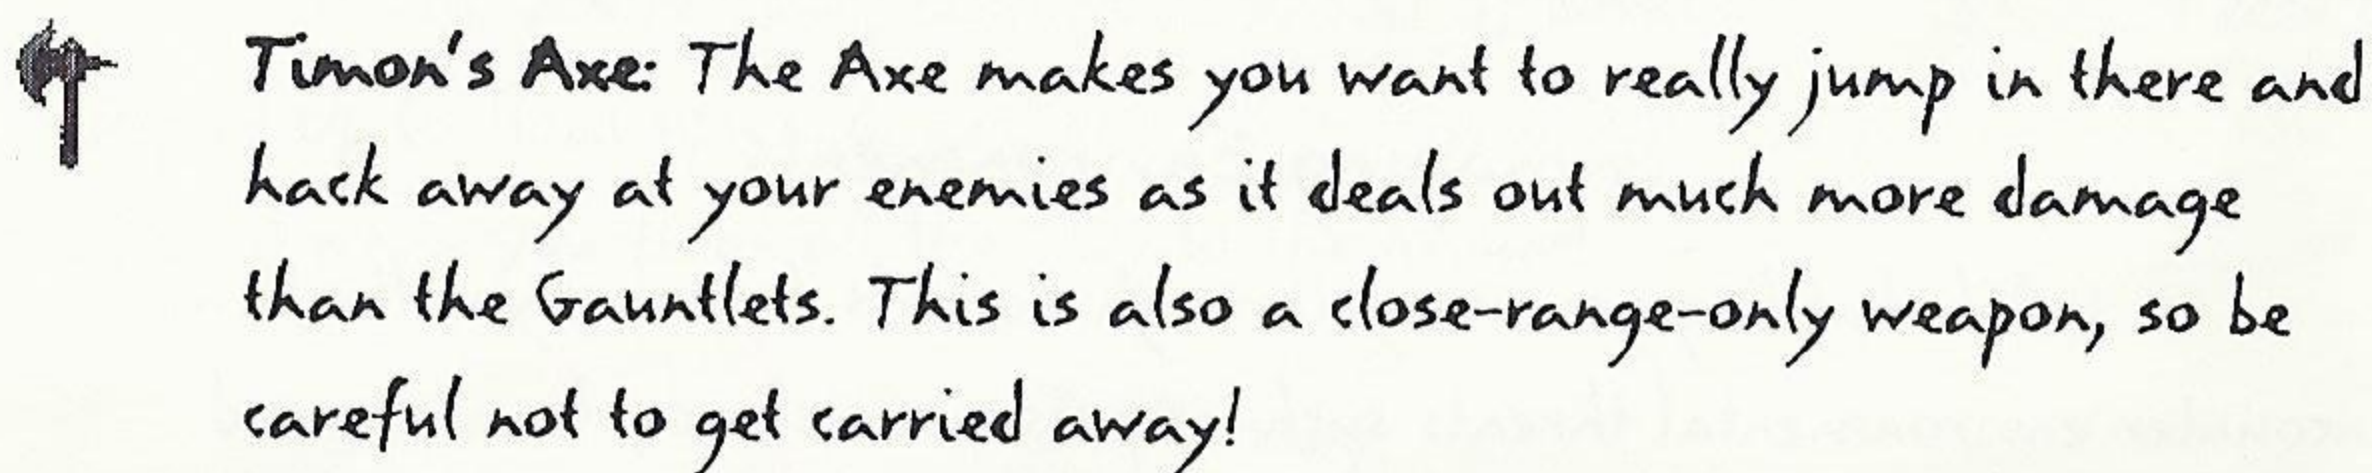 Timon's Axe: The Axe makes you want to really jump in there and
hack away at your enemies as it deals out much more damage
than the Gauntlets. This is also a close-range-only weapon, so be
careful not to get carried away!